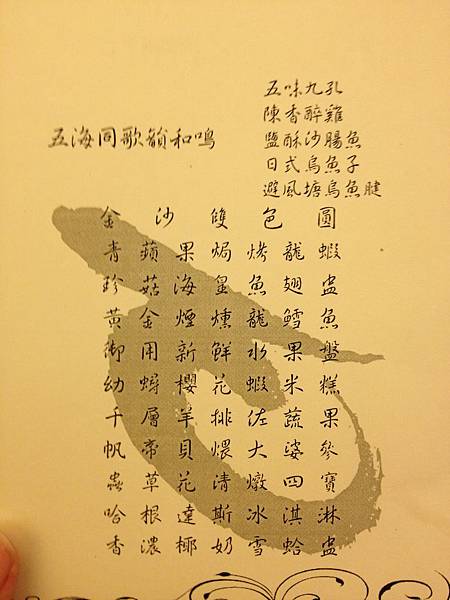 五海同歌韻和鳴
五味九孔
陳香醉雞
鹽酥沙腸魚
日式烏魚子
避風塘烏魚腱
金沙雙色圓
青蘋果焗烤龍蝦
珍菇海皇魚翅盅
黃金煙燻龍鱈魚
御用新鮮水果盤
幼蟳櫻花蝦米糕
千層羊排佐蔬果
帆帝貝煨大婆參
蟲草花清燉四寶
哈根達斯冰淇淋
香濃椰奶雪蛤盅